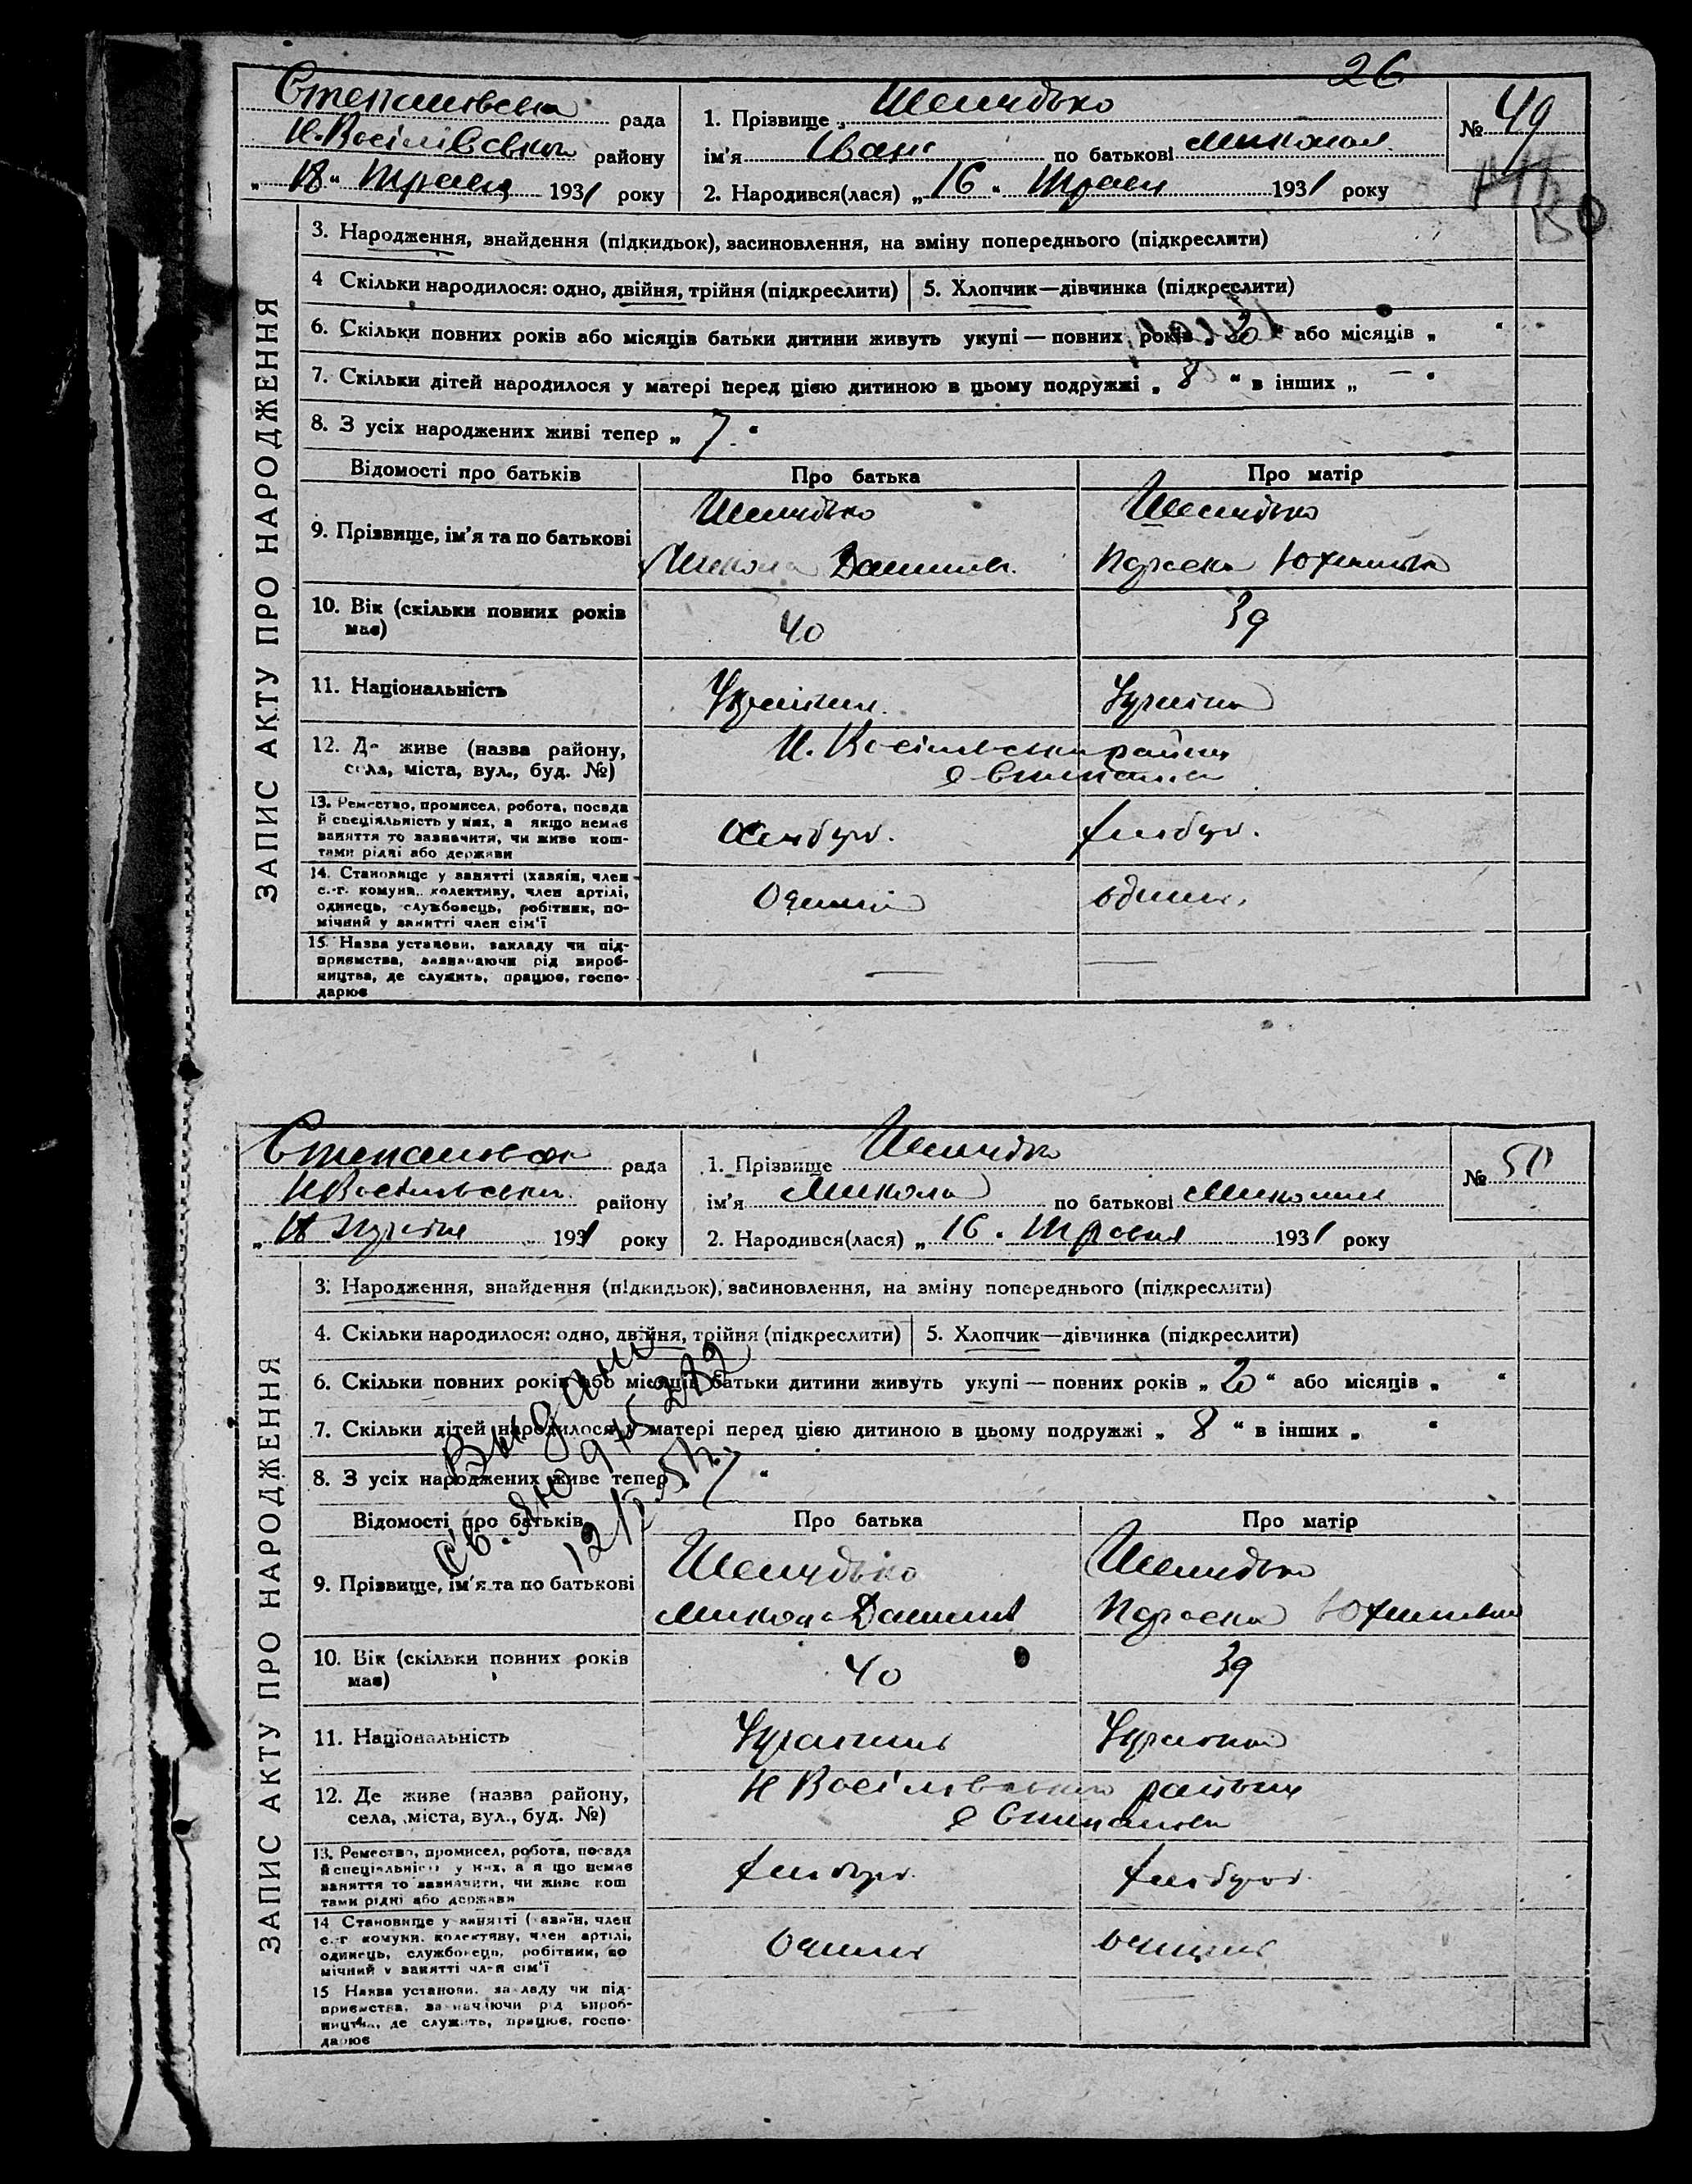 26
Степанівська рада
Н.-Васілівського району
„ 18 “ Травня 1931 року
1. Прізвище Шелудько
ім'я Іван по батькові Микол.
2. Народився(лася) „ 16 “ Травн 1931 року
№ 49
ЗАПИС АКТУ ПРО НАРОДЖЕННЯ
3. Народження, знайдення (підкидьок), засиновлення, на зміну попереднього (підкреслити)
4 Скільки народилося: одно, двійня, трійня (підкреслити)
5. Хлопчик—дівчинка (підкреслити)
6. Скільки повних років або місяців батьки дитини живуть укупі — повних років „ 20 “ або місяців „ “
7. Скільки дітей народилося у матері перед цією дитиною в цьому подружжі „ 8 “ в інших „ — “
8. З усіх народжених живі тепер „ 7. “
Відомості про батьків Про батька Про матір
9. Прізвище, ім'я та по батькові
Шелудько Шелудько
Микола Данилов. Параска Юхимівна
10. Вік (скільки повних років має) 40 39
11. Національність
12. Де живе (назва району, села, міста, вул., буд. №)
Н. Васілівського району
с Степанівка
13. Ремество, промисел, робота, посада
й спеціяльність у них, а якщо немає
заняття то зазначити, чи живе кош-
тами рідні або держави
хлібороб. хлібор.
14. Становище у занятті (хазяїн, член
с.-г. комуни, колективу, член артілі,
одинець, службовець, робітник, по-
мічний у занятті член сім'ї
15. Назва установи, закладу чи під-
приємства, зазначаючи рід вироб-
ництва, де служить, працює, госпо-
дарює
— —
рада
Н Васілівського району
„ 18 1931 року
1. Прізвище Шелудько
ім'я Микола по батькові Миколов
2. Народився(лася) „ 16 . Травня 1931 року
№ 50
ЗАПИС АКТУ ПРО НАРОДЖЕННЯ
3. Народження, знайдення (підкидьок), засиновлення, на зміну попереднього (підкреслити)
4. Скільки народилося: одно, двійня, трійня (підкреслити)
5. Хлопчик—дівчинка (підкреслити)
6. Скільки повних років або місяців батьки дитини живуть укупі — повних років „ 20 “ або місяців „ “
7. Скільки дітей народилося у матері перед цією дитиною в цьому подружжі „ 8 “ в інших „ “
8. З усіх народжених живе тепер 7 “
Відомості про батьків Про батька Про матір
9. Прізвище, ім'я та по батькові
Шелудько Шелудько
Микола Данилов Параска Юхимівна
10. Вік (скільки повних років має) 40 39
11. Національність
12. Де живе (назва району, села, міста, вул., буд. №)
Н Васілівського району
с Степанівка
13. Ремество, промисел, робота, посада
й спеціяльність у них, а якщо немає
заняття то зазначити, чи живе кош
тами рідні або держави
хлібор. хлібороб.
14 Становище у занятті (хазяїн, член
с.-г комуни, колективу, член артілі,
одинець, службовець, робітник, по
мічний у занятті член сім'ї
15 Назва установи, закладу чи під-
приємства, зазначаючи рід вироб-
ництва, де служить, працює, госпо-
дарює